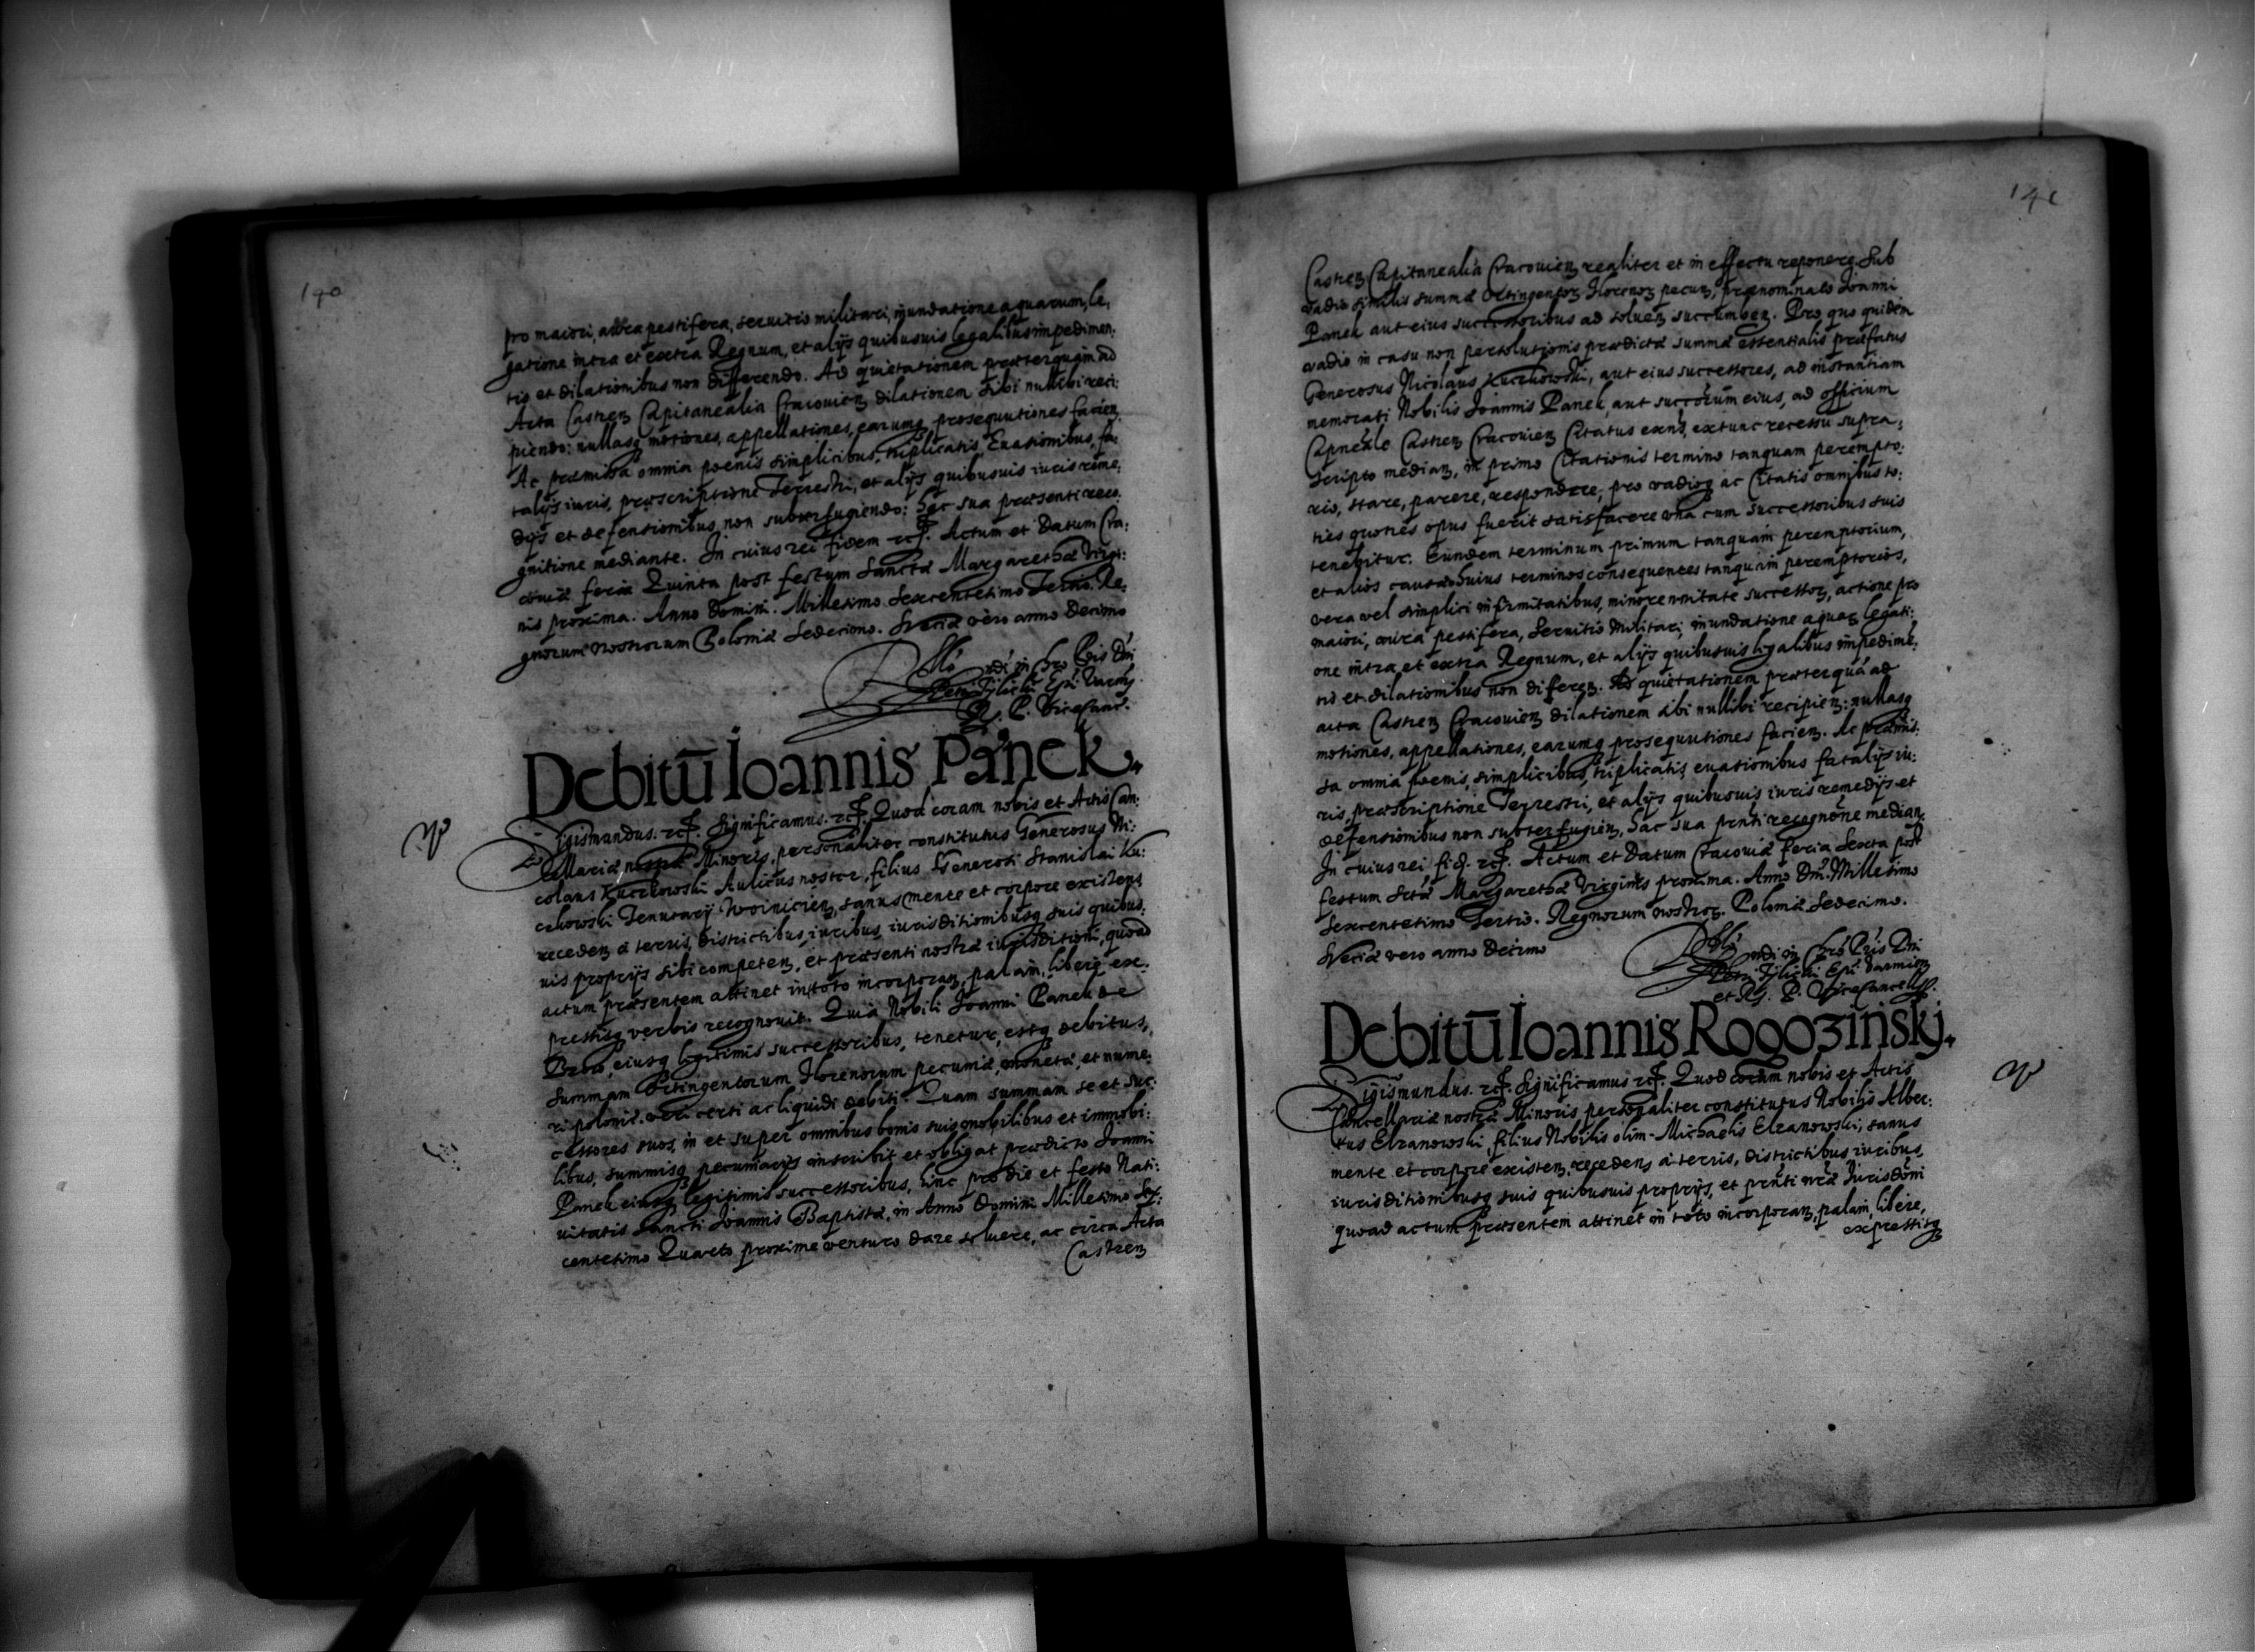 190
pro maiori, aura pestifera, seruitio militari, inundatione aquarum, le,
gatione intra et extra Regnum, et alijs quibusuis legalibus impedimen,
tis et dilationibus non differendo. Ad quietationem præterquam ad
Acta Castren Capitanealia Cracouien dilationem sibi nullibi reci:
piendo: nullasq motiones, appellationes, earumq prosequutiones facien.
Ac præmissa omnia poenis simplicibus, triplicatis Euasionibus, fa:
talijs iuris, præscriptione Terrestri, et alijs quibusuis iuris reme,
dijs et defensionibus non subterfugiendo: Hac sua præsenti reco,
gnitione mediante. In cuius rei fidem etc. Actum et Datum Cra:
couiæ feria Quinta post festum Sanctæ Margarethæ Virgi:
nis proxima. Anno Domini. Millesimo Sexcentesimo Tertio. Re,
gnorum nostrorum Poloniæ Sedecimo. Sveciæ vero anno Decimo
Rllo ndi in Chro Pris Dni
Petri Tylicki Epi Varm
R. P. Vicecanc.
Debitū Ioannis Panek.
Sigismundus. etc. Significamus. etc. Quod coram nobis et Actis Can:
cellariæ nostræ Minoris, personaliter constitutus Generosus Ni:
colaus Kuczkowski Aulicus noster, filius Generosi Stanislai Ku:
czkowski Tenutarij Woinicien, sanus mente et corpore existens
receden a terris, districtibus, iuribus, iurisditionibusq suis quibus:
uis proprijs sibi competen, et præsenti nostræ iurisditioni, quoad
actum præsentem attinet in toto incorporan, palam, libere ex:
pressisq verbis recognouit. Quia Nobili Ioanni Panek de
Brzo, eiusq legitimis successoribus, tenetur, estq debitus,
summam Octingentorum Florenorum pecuniæ, monetæ, et nume:
ri polonic. veri certi ac liquidi debiti. Quam summam se et suc:
cessores suos, in et super omnibus bonis suis mobilibus et immobi:
libus, summisq pecuniarijs inscribit et obligat prædicto Ioanni
Panek eiusq legitimis successoribus, hinc pro die et festo Nati:
uitatis Sancti Ioannis Baptistæ, in Anno Domini Millesimo Sex:
centesimo Quarto proxime venturo dare soluere, ac circa Acta
Castren
141
Castren Capitanealia Cracouien realiter et in effectu reponere. Sub
vadio similis summæ Octingentor Florenor pecun, prænominato Ioanni
Panek aut eius successoribus ad soluen succumben. Pro quo quidem
vadio in casu non persolutionis prædictæ summæ essentialis præfatus
Generosus Nicolaus Kuczkowski, aut eius successores, ad instantiam
memorati Nobilis Ioannis Panek, aut succorum eius, ad officium
Capneale Castren Cracouien Citatus exns, extunc recessu supra,
scripto median, in primo Citationis termino tanquam perempto:
rio, stare, parere, respondere, pro vadioq ac Citatis omnibus to:
ties quoties opus fuerit satisfacere vna cum successoribus suis
tenebitur. Eundem terminum primum tanquam peremptorium,
et alios causæ huius terminos consequences tanquam peremptorios,
vera vel simplici infirmitatibus, minorennitate successor, actione pro
maiori, aura pestifera, Seruitio Militari, inundatione aquar legati:
one intra et extra Regnum, et alijs quibusuis legalibus impedime,
tis et dilationibus non differen. Ad quietationem præterquā ad
acta Castren Cracouien dilationem sibi nullibi recipien: nullasq
motiones, appellationes, earumq prosequutiones facien. Ac præmis:
sa omnia poenis, simplicibus, triplicatis euasionibus fatalijs iu:
ris, præscriptione Terrestri, et alijs quibusuis iuris remedijs et
defensionibus non subterfugien, Hac sua pnti recognone median.
In cuius rei fid. etc. Actum et Datum Cracouiæ feria Sexta post
festum Sctæ Margarethæ Virginis proxima. Anno Dni. Millesimo
Sexcentesimo Tertio. Regnorum nostror. Poloniæ Sedecimo.
Sveciæ vero anno Decimo
Rllo ndi in Chro Pris Dni
Petri Tylicki Epi Varmien
et R. P. Vicecancell.
Debitū Ioannis Rogozinskj.
Sigismundus. etc. Significamus etc. Quod coram nobis et Actis
Cancellariæ nostræ Minoris personaliter constitutus Nobilis Alber:
tus Elzanowski, filius Nobilis olim Michaelis Elzanowski, sanus
mente et corpore existen, recedens a terris, districtibus iuribus,
iurisditionibusq suis quibusuis proprijs, et pnti nræ Iurisdōni
quoad actum præsentem attinet in toto incorporan, palam, libere,
expressisq